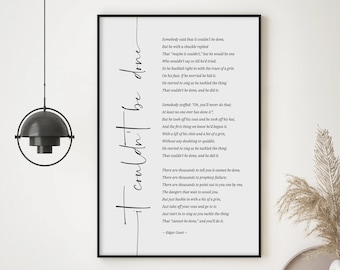 it couldn't be done
Somebody said that it couldn't be done,
But he with a chuckle replied
That "maybe it couldn't," but he would be one
Who wouldn't say so till he'd tried.
So he buckled right in with the trace of a grin
On his face. If he worried he hid it.
He started to sing as he tackled the thing
That couldn't be done, and he did it.
Somebody scoffed: "Oh, you'll never do that;
At least no one ever has done it";
But he took off his coat and he took off his hat,
And the first thing we knew he'd begun it.
With a lift of his chin and a bit of a grin,
Without any doubting or quiddit,
He started to sing as he tackled the thing
That couldn't be done, and he did it.
There are thousands to tell you it cannot be done,
There are thousands to prophesy failure;
There are thousands to point out to you one by one,
The dangers that wait to assail you.
But just buckle in with a bit of a grin,
Just take off your coat and go to it;
Just start in to sing as you tackle the thing
That "cannot be done," and you'll do it.
~ Edgar Guest ~